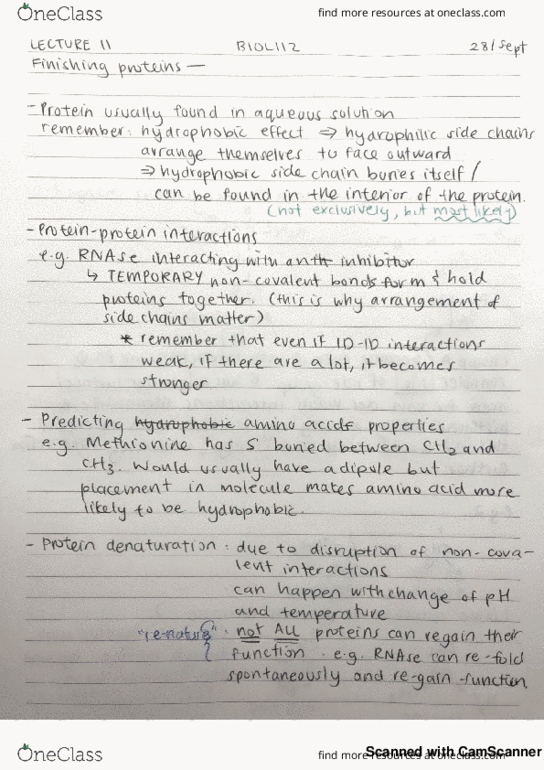 OneClass
find more resources at oneclass.com
LECTURE 11 BIOL112 28/Sept
Finishing proteins —
- Protein usually found in aqueous solution
remember: hydrophobic effect ⇒ hydrophilic side chains
arrange themselves to face outward
⇒ hydrophobic side chain buries itself /
can be found in the interior of the protein.
(not exclusively, but most likely)
- Protein-protein interactions
e.g. RNAse interacting with an inhibitor
↳ TEMPORARY non-covalent bonds form & hold
proteins together. (this is why arrangement of
side chains matter)
* remember that even if ID-ID interactions
weak, if there are a lot, it becomes
stronger
- Predicting hydrophobic amino acids properties
e.g. Methionine has S buried between CH2 and
CH3. Would usually have a dipole but
placement in molecule mates amino acid more
likely to be hydrophobic.
- Protein denaturation: due to disruption of non-cova-
lent interactions
can happen with change of pH
and temperature
"re-nature" · not ALL proteins can regain their
function. e.g. RNAse can re-fold
spontaneously and re-gain function
OneClass
find more resources at oneclass.com
Scanned with CamScanner